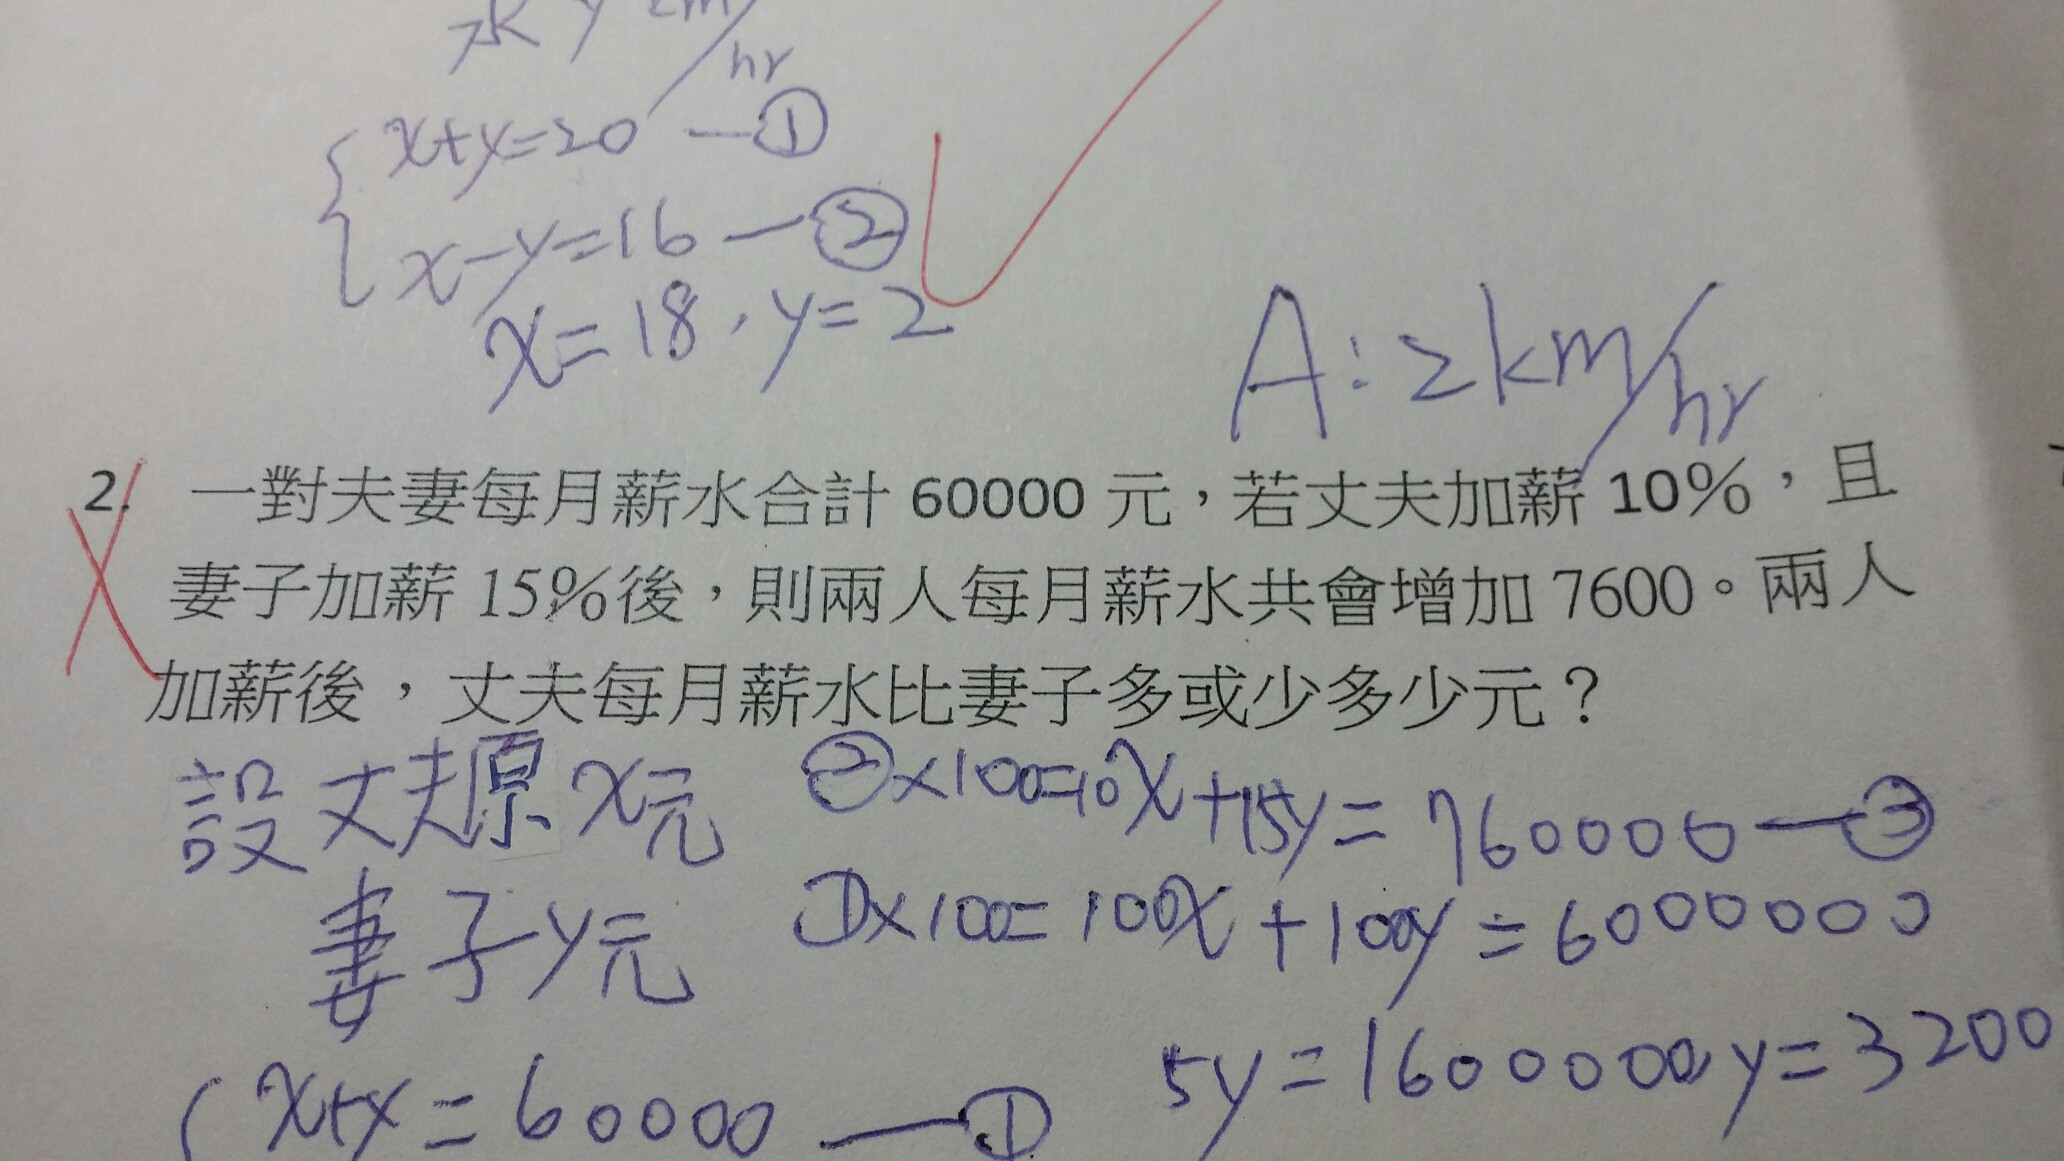 水 y km/hr
{ x+y=20 —①
x-y=16 —②
x=18，y=2
A：2km/hr
2. 一對夫妻每月薪水合計 60000 元，若丈夫加薪 10%，且
妻子加薪 15%後，則兩人每月薪水共會增加 7600。兩人
加薪後，丈夫每月薪水比妻子多或少多少元？
設丈夫原 x元
妻子y元
{ x+x=60000 —①
②×100=10x+15y=760000 —③
①×100=100x+100y=6000000
5y=1600000 y=3200